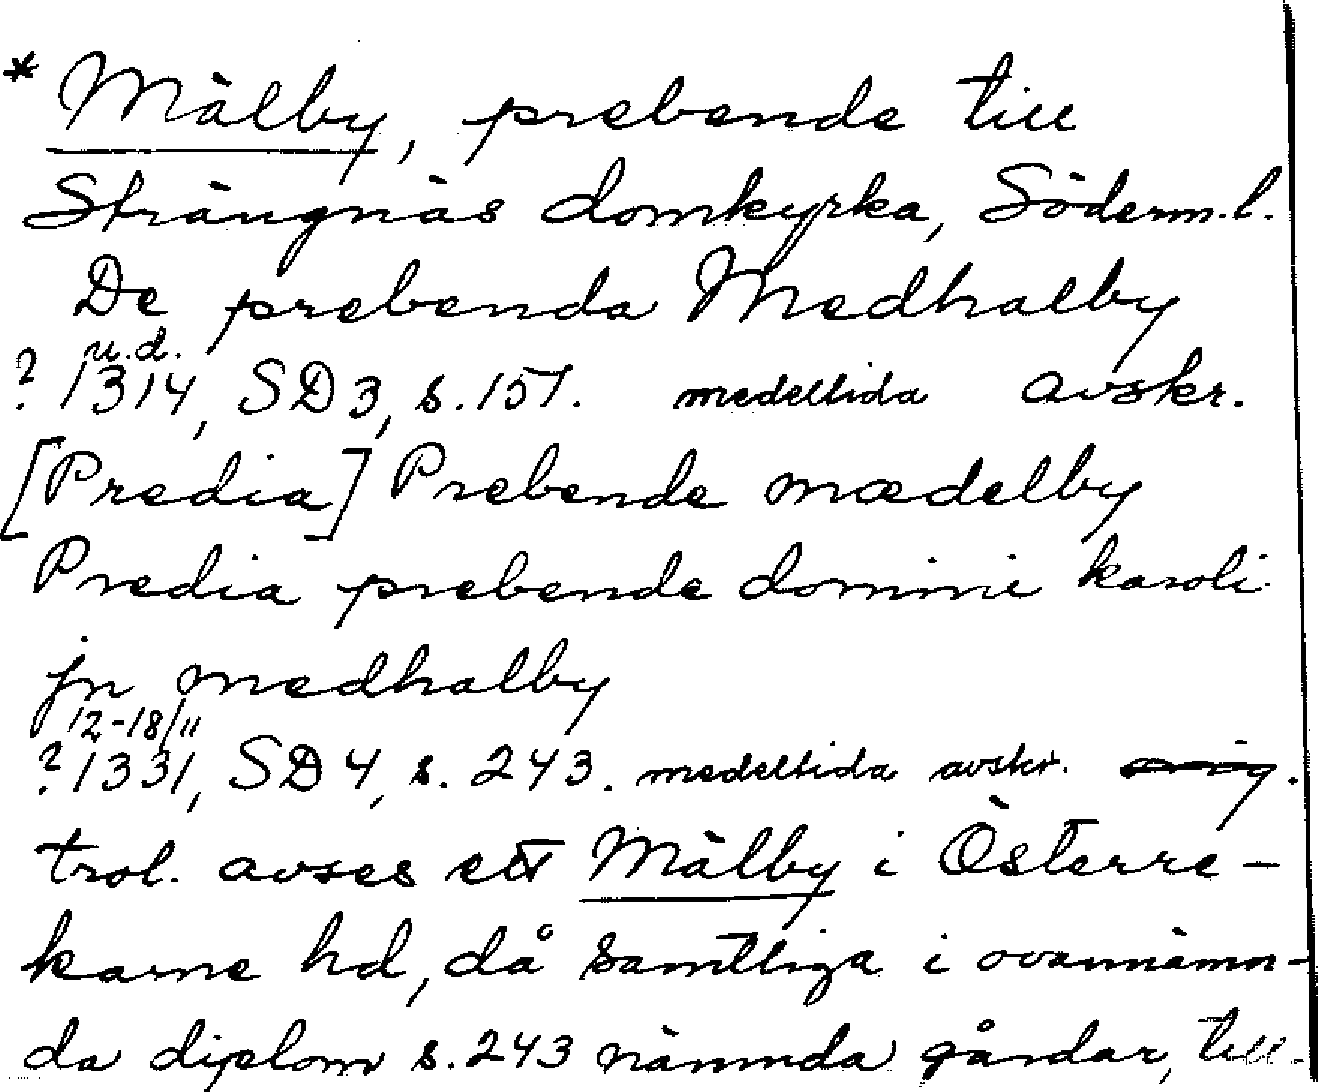 * Mälby, prebende till
Strängnäs domkyrka, Söderm.l.
De prebenda Medhalby
u.d.
? 1314, SD 3, s. 157. medeltida avskr.
[Predia] Prebende mædelby
Predia prebende domini karoli
jn medhalby
12-18/11
? 1331, SD 4, s. 243. medeltida avskr. orig.
trol. avses ett Mälby i Österre-
karne hd, då samtliga i ovannämn-
da diplom s. 243 nämnda gårdar, till-